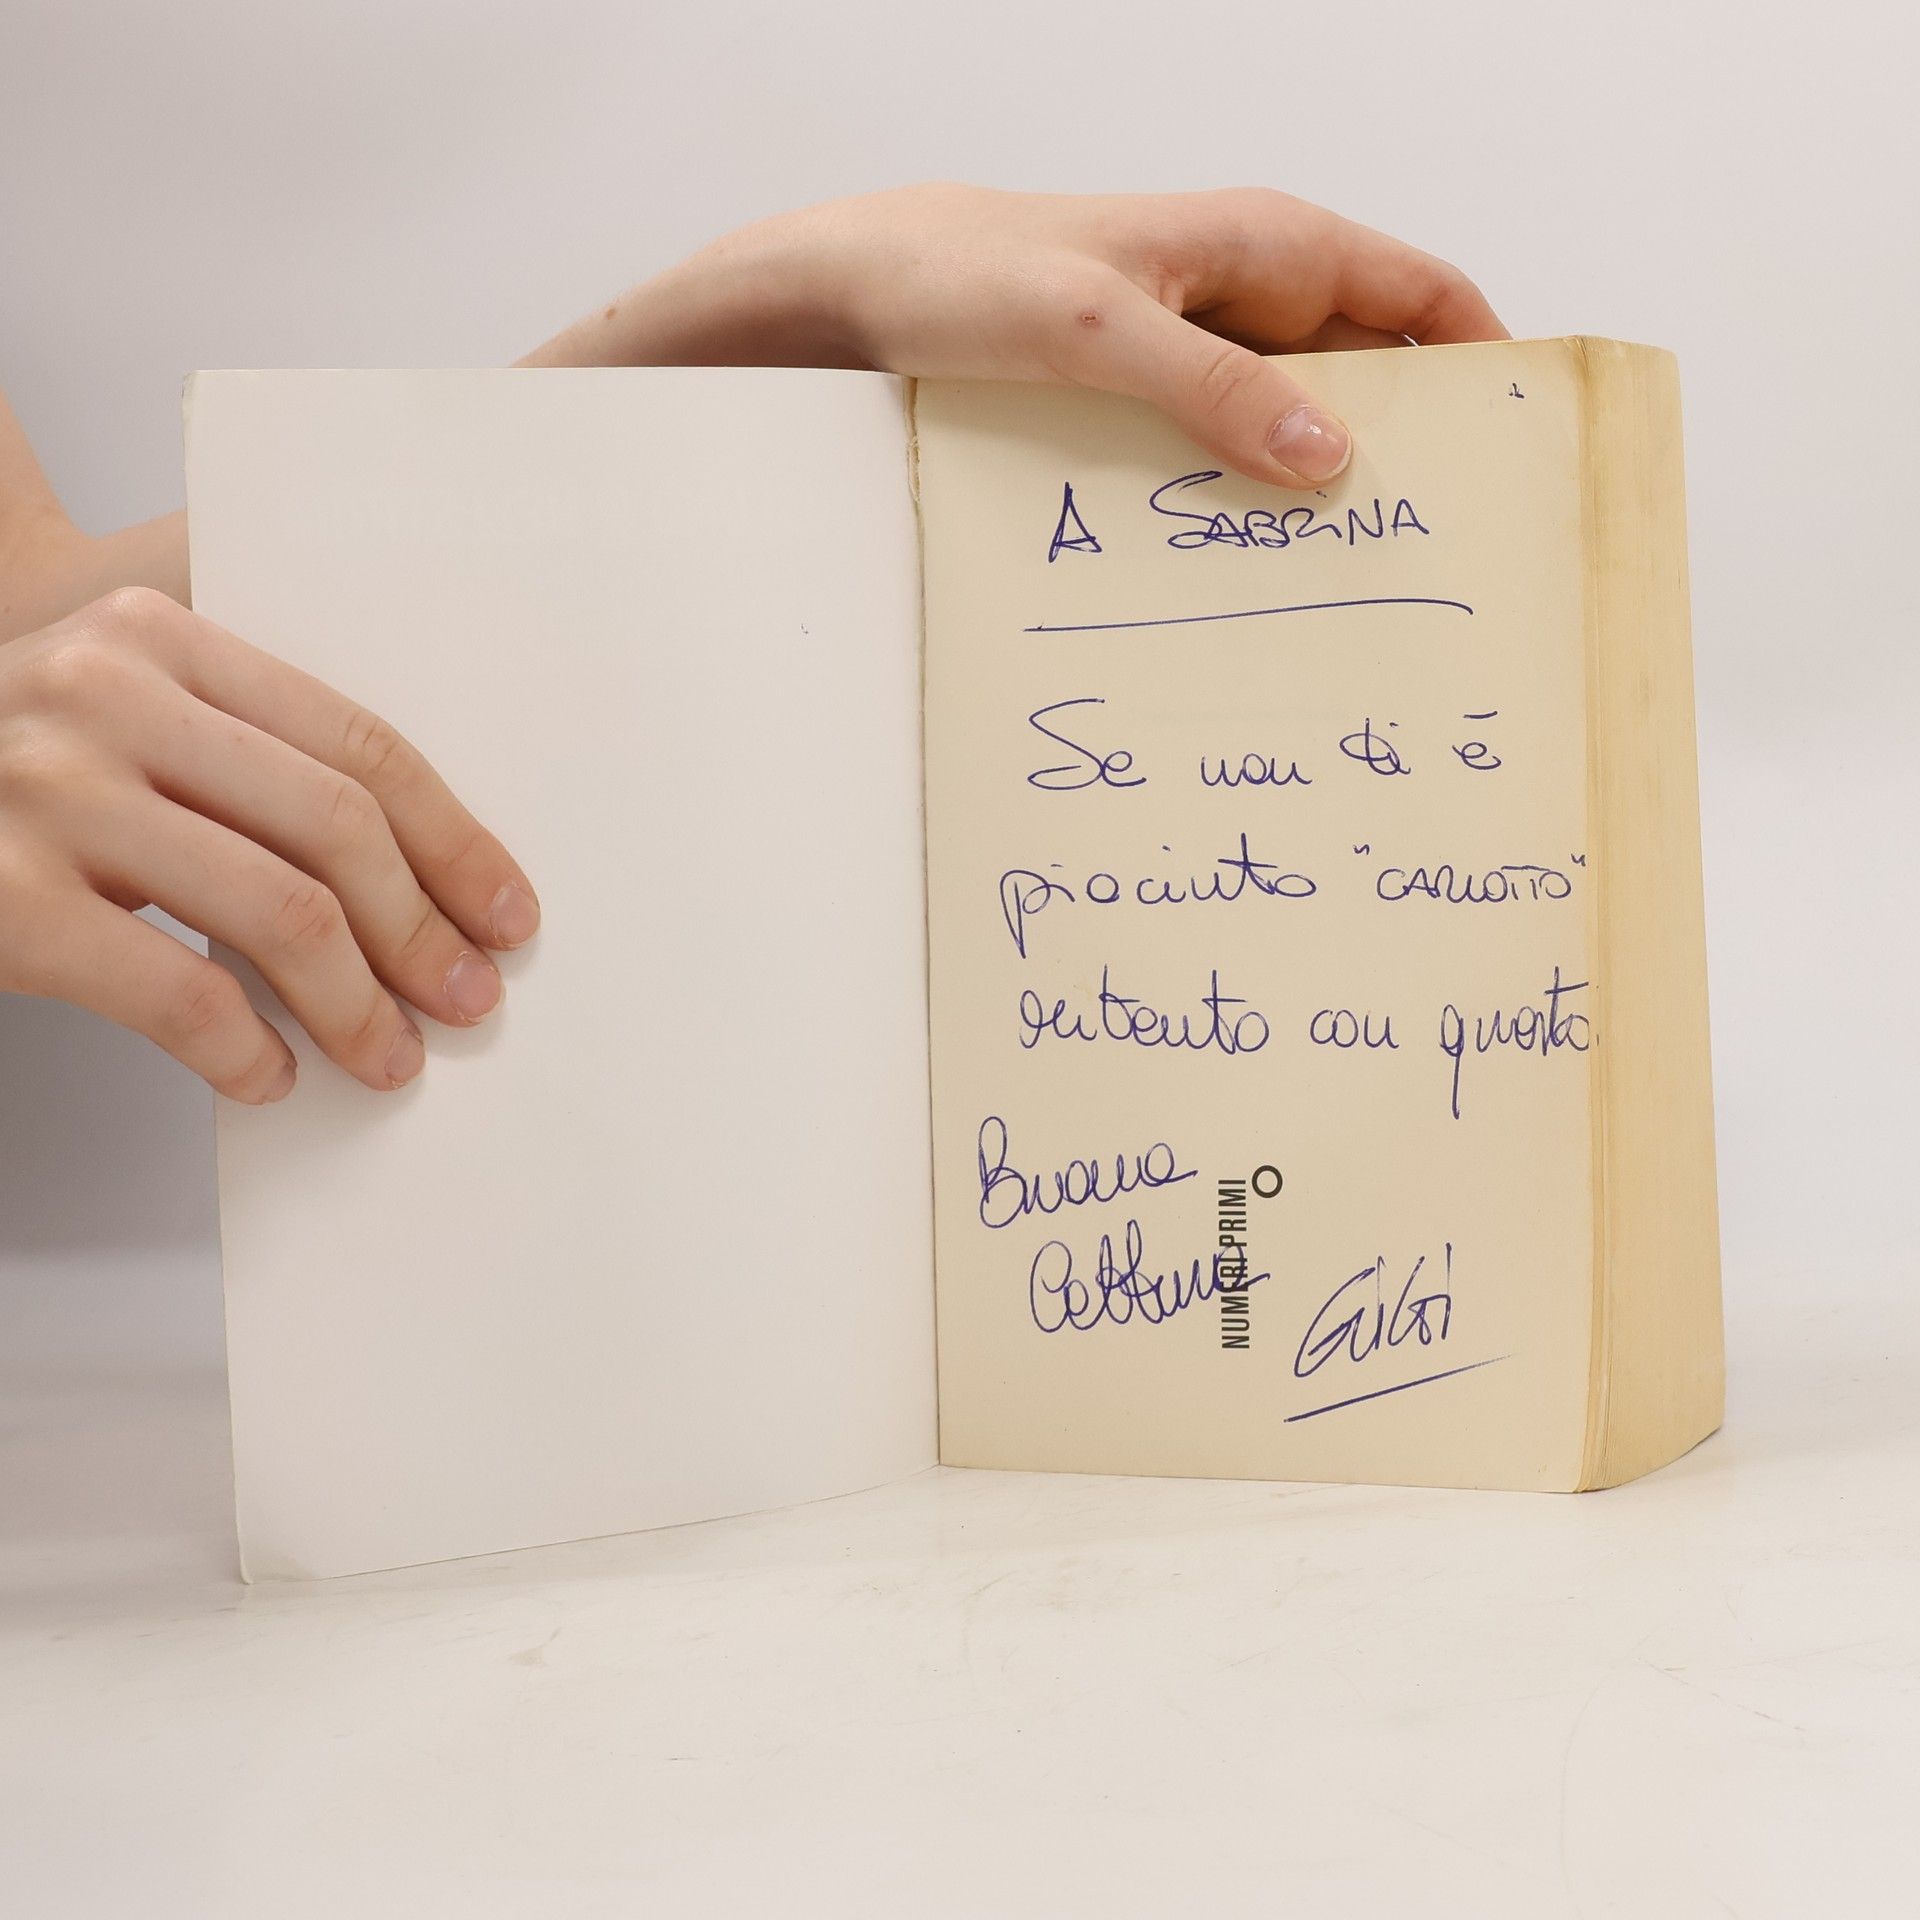 A SABRINA
Se non ti è
piaciuto "CARLOTTO"
ritento con questo.
Buona
Lettura
NUMERI PRIMI
GIGI